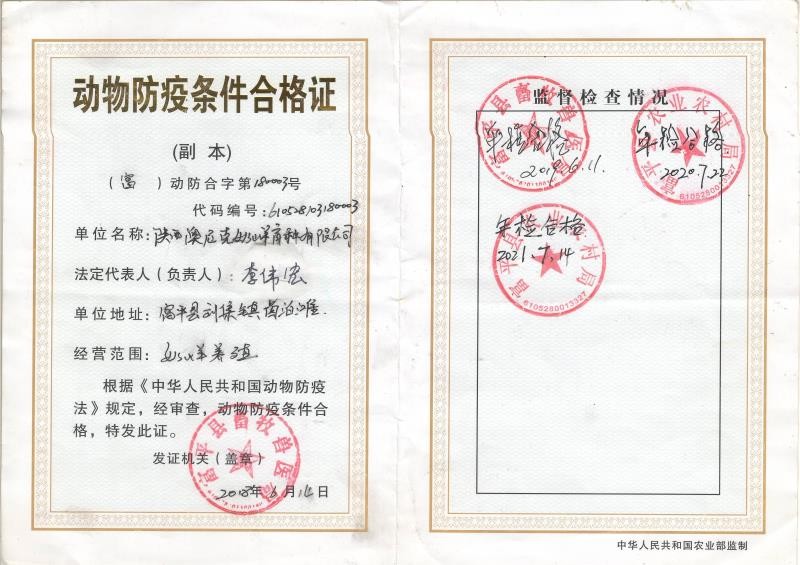 动物防疫条件合格证
(副 本)
（富 ）动防合字第180003号
代码编号：610528103180003
单位名称：陕西澳尼克奶山羊育种有限公司
法定代表人（负责人）：李伟宏
单位地址：富平县刘集镇卤泊滩
经营范围：奶山羊养殖
根据《中华人民共和国动物防疫
法》规定，经审查，动物防疫条件合
格，特发此证。
发证机关（盖章）
富平县畜牧兽医局
2018年6月14日
监督检查情况
富平县畜牧兽医局
年检合格
2019.6.11.
富平县农业农村局
6105280013327
年检合格
2020.7.22
富平县农业农村局
6105280013327
年检合格
2021.7.14
中华人民共和国农业部监制